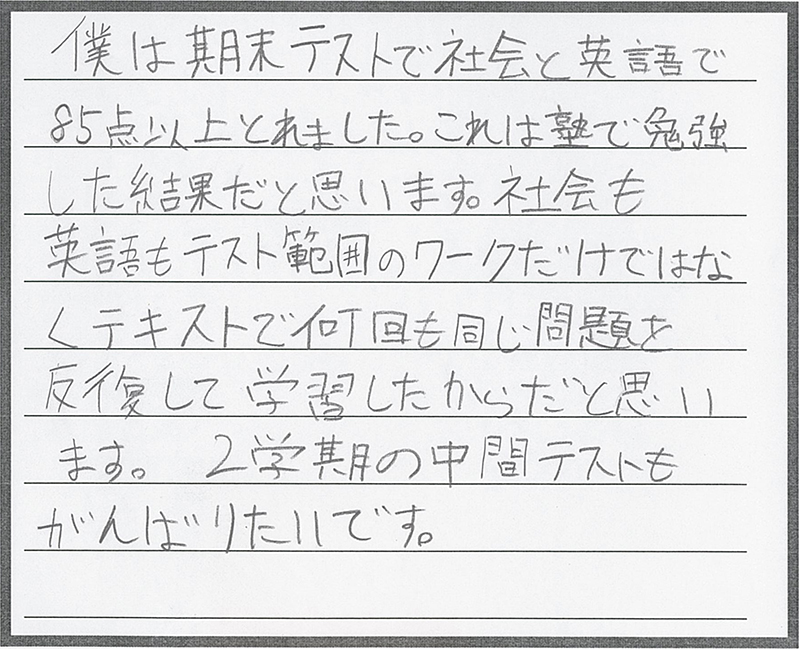 僕は期末テストで社会と英語で
85点以上とれました。これは塾で勉強
した結果だと思います。社会も
英語もテスト範囲のワークだけではな
くテキストで何回も同じ問題を
反復して学習したからだと思い
ます。 2学期の中間テストも
がんばりたいです。